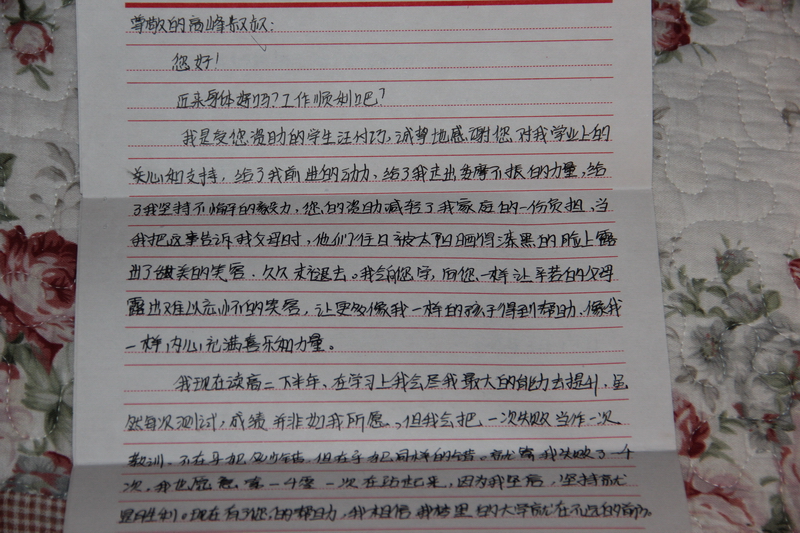 尊敬的高峰叔叔:
您好!
近来身体好吗?工作顺利吧?
我是受您资助的学生汪付巧,诚挚地感谢您对我学业上的
关心和支持,给了我前进的动力、给了我走出萎靡不振的力量,给
了我坚持不懈的毅力,您的资助减轻了我家庭的一份负担、当
我把这事告诉我父母时,他们往日被太阳晒得漆黑的脸上露
出了甜美的笑容、久久未退去。我会向您学,向您一样让辛苦的父母
露出难以忘怀的笑容,让更多像我一样的孩子得到帮助、像我
一样内心充满喜乐和力量。
我现在读高二下半年、在学习上我会尽我最大的能力去提升,虽
然每次测试,成绩并非如我所愿、但我会把一次失败当作一次
教训。不在乎犯多少错,但在乎犯同样的错。就算我失败了一千
次,我也愿意一千零一次在站起来,因为我坚信,坚持就
是胜利。现在有了您的帮助,我相信我梦里的大学就在不远的前方。